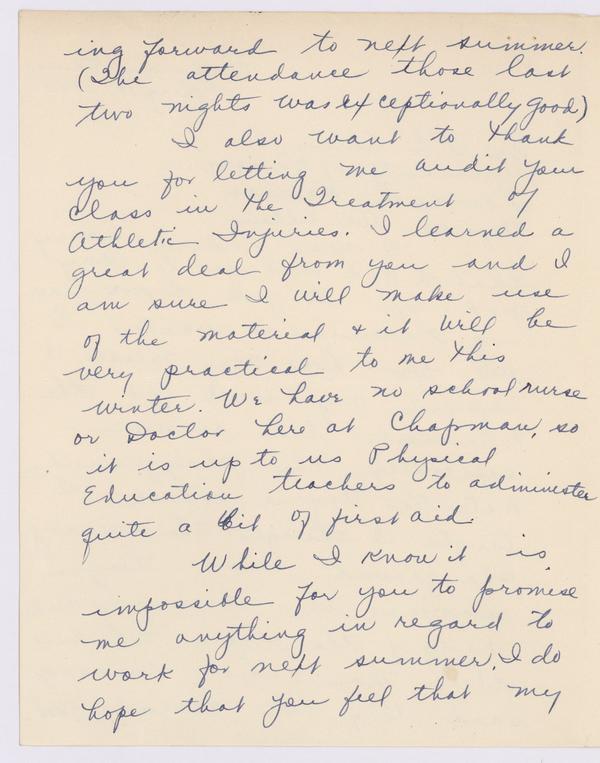 ing forward to next summer.
(The attendance those last
two nights was exceptionally good)
I also want to thank
you for letting me audit your
class in the Treatment of
Athletic Injuries. I learned a
great deal from you and I
am sure I will make use
of the material + it will be
very practical to me this
winter. We have no school nurse
or Doctor here at Chapman, so
it is up to us Physical
Education teachers to administer
quite a bit of first aid.
While I know it is
impossible for you to promise
me anything in regard to
work for next summer, I do
hope that you feel that my